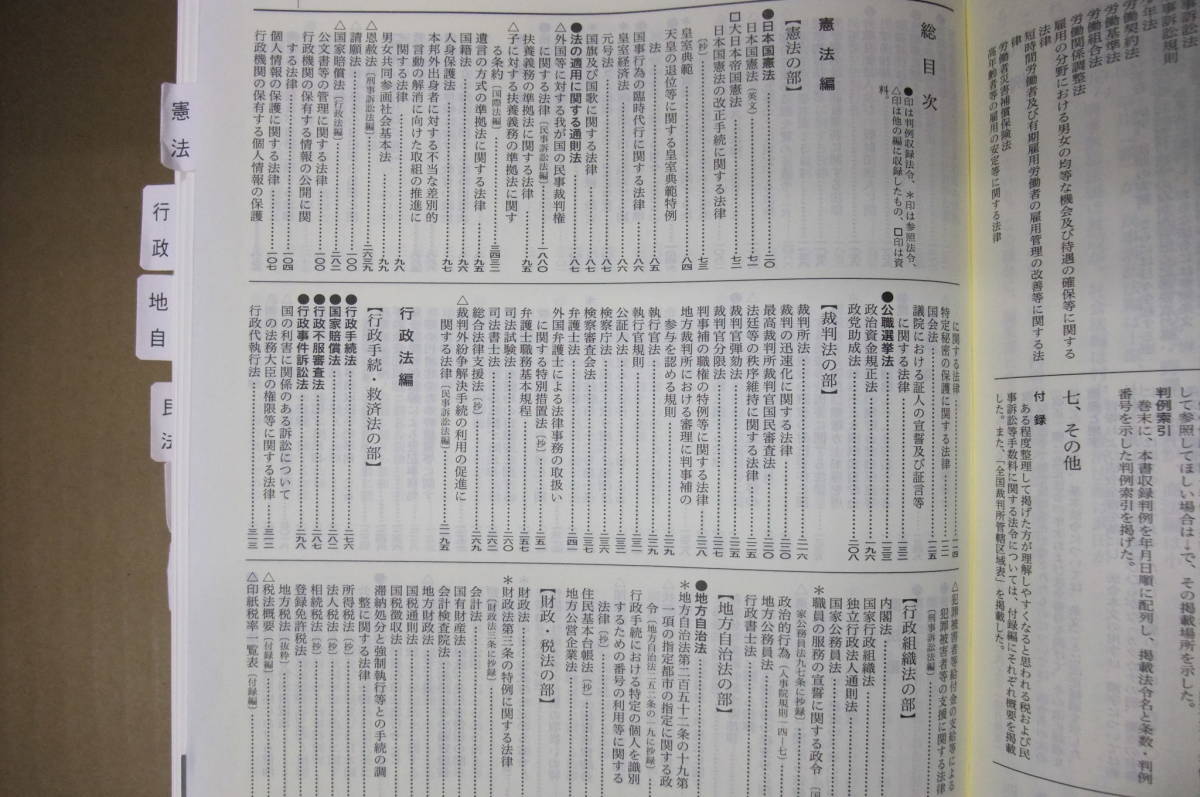 憲法
行政
地自
民法
総目次
●印は判例収録法令、＊印は参照法令、
△印は他の編に収録したもの、□印は資
料。
憲法編
【憲法の部】
●日本国憲法……二〇
日本国憲法（英文）……七一
□大日本帝国憲法……七二
日本国憲法の改正手続に関する法律
（抄）……七三
皇室典範……八四
天皇の退位等に関する皇室典範特例
法……八五
国事行為の臨時代行に関する法律……八六
皇室経済法……八六
元号法……八七
国旗及び国歌に関する法律……八七
●法の適用に関する通則法……八七
△外国等に対する我が国の民事裁判権
に関する法律〔民事訴訟法編〕……一八八〇
扶養義務の準拠法に関する法律……九五
△子に対する扶養義務の準拠法に関す
る条約〔国際法編〕……三四三二
遺言の方式の準拠法に関する法律……九五
国籍法……九六
人身保護法……九七
本邦外出身者に対する不当な差別的
言動の解消に向けた取組の推進に
関する法律……九八
男女共同参画社会基本法……九九
△恩赦法〔刑事訴訟法編〕……二六三九
請願法……一〇〇
△国家賠償法〔行政法編〕……二八二
公文書等の管理に関する法律……一〇〇
行政機関の保有する情報の公開に関
する法律……一〇四
個人情報の保護に関する法律……一〇七
行政機関の保有する個人情報の保護
に関する法律……一一四
特定秘密の保護に関する法律……一二一
国会法……一二五
議院における証人の宣誓及び証言等
に関する法律……一三二
●公職選挙法……一三三
政治資金規正法……一九六
政党助成法……二〇八
【裁判法の部】
裁判所法……二一六
裁判の迅速化に関する法律……二二〇
最高裁判所裁判官国民審査法……二二〇
法廷等の秩序維持に関する法律……二二四
裁判官弾劾法……二二五
裁判官分限法……二二七
判事補の職権の特例等に関する法律……二二八
地方裁判所における審理に判事補の
参与を認める規則……二二九
執行官法……二二九
執行官規則……二三一
公証人法……二三二
検察庁法……二三六
検察審査会法……二三七
弁護士法……二四一
外国弁護士による法律事務の取扱い
に関する特別措置法（抄）……二五一
弁護士職務基本規程……二五七
司法試験法……二六〇
司法書士法……二六二
総合法律支援法（抄）……二六九
△裁判外紛争解決手続の利用の促進に
関する法律〔民事訴訟法編〕……二一九五
行政法編
【行政手続・救済法の部】
●行政手続法……二七六
●国家賠償法……二八二
●行政不服審査法……二八七
●行政事件訴訟法……二九八
国の利害に関係のある訴訟について
の法務大臣の権限等に関する法律……三一二
行政代執行法……三一三
△犯罪被害者等給付金の支給等による
犯罪被害者等の支援に関する法律
〔刑事訴訟法編〕
【行政組織法の部】
内閣法
国家行政組織法
独立行政法人通則法
国家公務員法
＊職員の服務の宣誓に関する政令
政治的行為（人事院規則一四―七）
地方公務員法
行政書士法
【地方自治法の部】
●地方自治法
＊地方自治法第二百五十二条の十九第
一項の指定都市の指定に関する政
令〔地方自治法二五二条の一九に抄録〕
行政手続における特定の個人を識別
するための番号の利用等に関する
法律（抄）
住民基本台帳法（抄）
地方公営企業法
【財政・税法の部】
財政法
＊財政法第三条の特例に関する法律
〔財政法三条に抄録〕
会計法
国有財産法
会計検査院法
地方財政法
国税通則法
国税徴収法
滞納処分と強制執行等との手続の調
整に関する法律
所得税法（抄）
法人税法（抄）
相続税法（抄）
登録免許税法
地方税法（抜粋）
△税法概要〔付録編〕
△印紙税率一覧表〔付録編〕
労働契約法
労働基準法
労働組合法
労働関係調整法
雇用の分野における男女の均等な機会及び待遇の確保等に関する
法律
短時間労働者及び有期雇用労働者の雇用管理の改善等に関する法
律
労働者災害補償保険法
高年齢者等の雇用の安定等に関する法律
して参照してほしい場合は→で、その掲載場所を示した。
判例索引
巻末に、本書収録判例を年月日順に配列し、掲載法令名と条数・判例
番号を示した判例索引を掲げた。
七、その他
付録
ある程度整理して掲げた方が理解しやすくなると思われる税および民
事訴訟等手数料に関する法令については、付録編にそれぞれ概要を掲載
した。また、「全国裁判所管轄区域表」を掲載した。